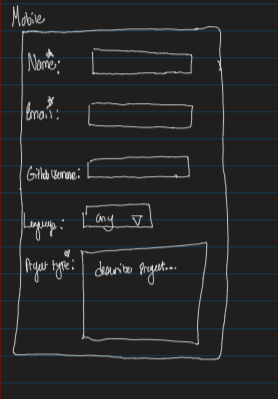 Mobile
Name*:
Email*:
Github Username:
Language:
any
Project type*:
describe Project...